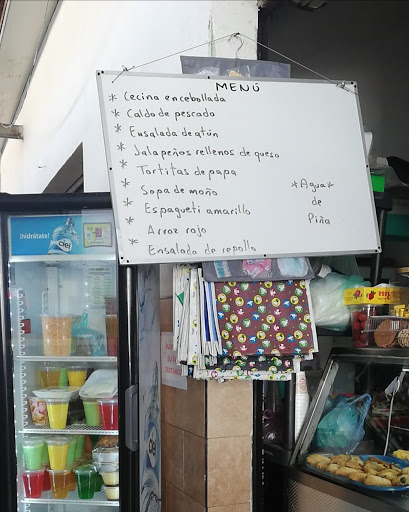 MENÚ
* Cecina encebollada
* Caldo de pescado
* Ensalada de atún
* Jalapeños rellenos de queso
* Tortitas de papa
* Sopa de moño
* Espagueti amarillo
* Arroz rojo
* Ensalada de repollo
*Agua*
de
Piña
¡hidrátate!
Ciel